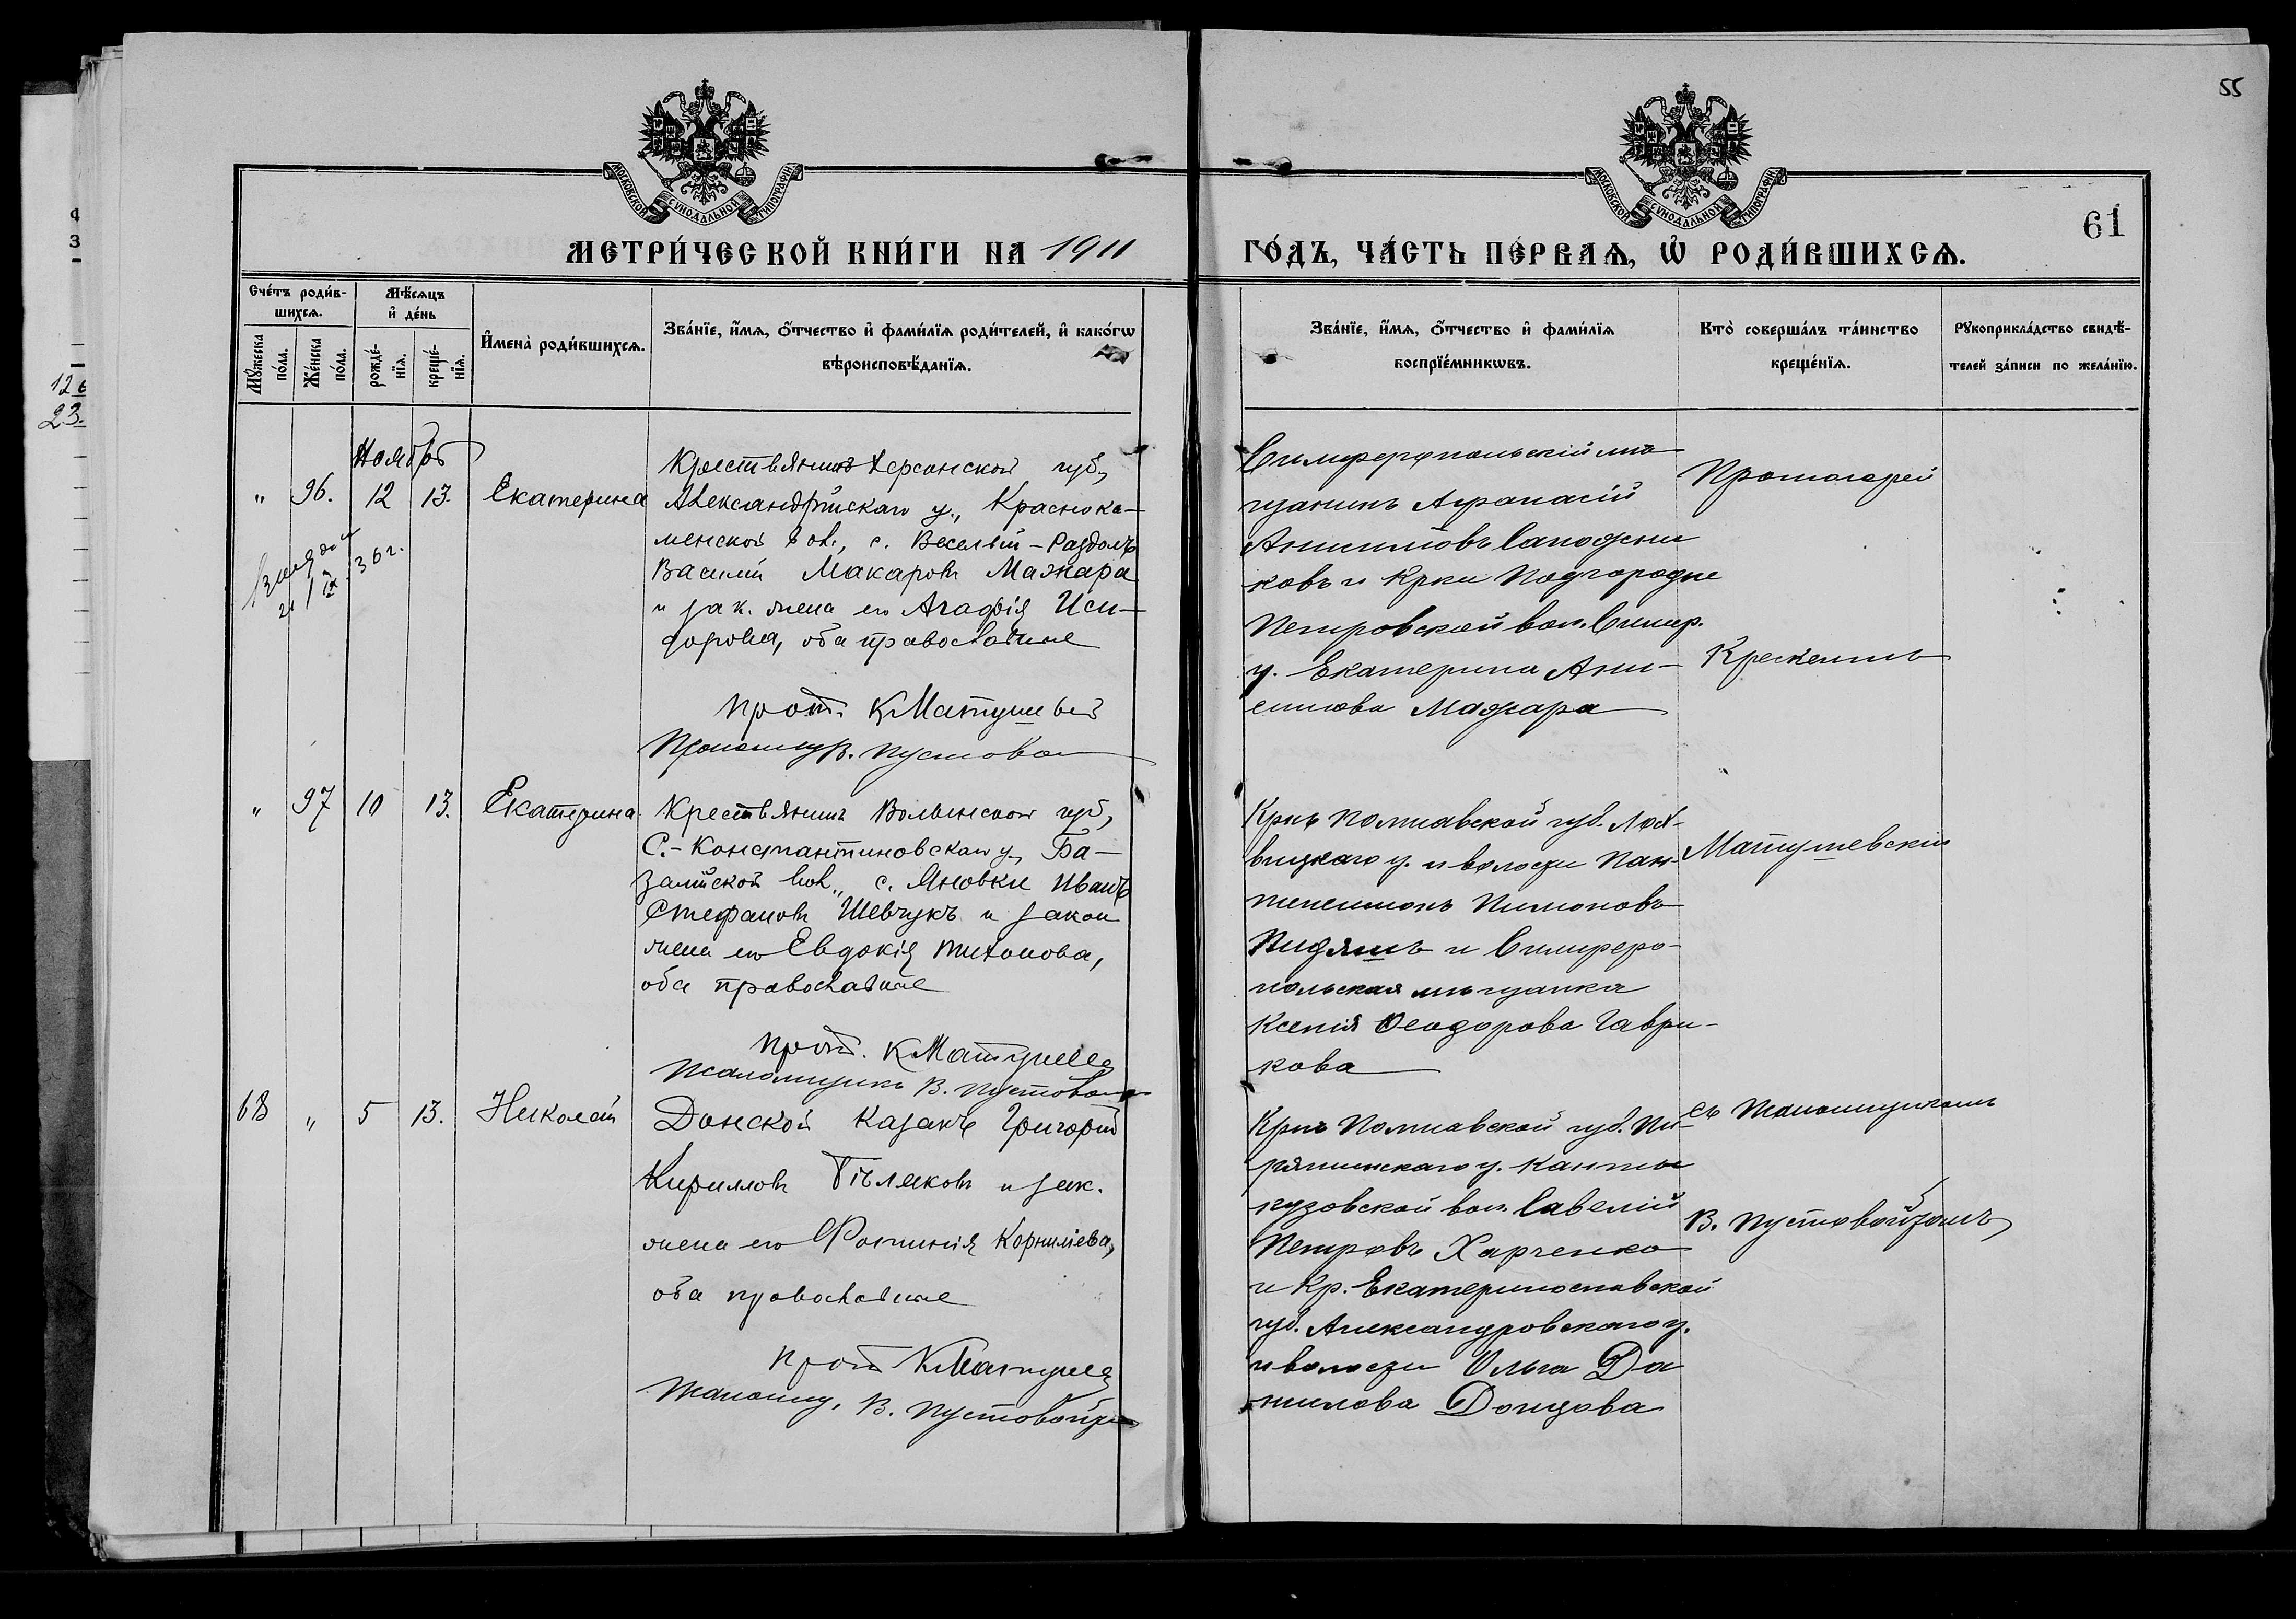 55
61
МОСКОВСКОЙ СУНОДАЛЬНОЙ ТИПОГРАФІИ.
МОСКОВСКОЙ СУНОДАЛЬНОЙ ТИПОГРАФІИ.
МЕТРИ́ЧЕСКОЙ КНИ́ГИ НА 1911
ГО́ДЪ, ЧА́СТЬ ПЕ́РВАѦ, Ѡ҆ РОДИ́ВШИХСѦ.
Сче́тъ роди́в-
шихсѧ.
Мѣ́сѧцъ
и҆ де́нь
Мꙋ́жеска
по́ла.
Же́нска
по́ла.
рожде́-
нїѧ.
креще́-
нїѧ.
И҆мена̀ роди́вшихсѧ.
Зва́нїе, и҆́мѧ, ѻ҆́тчество и҆ фами́лїѧ роди́телей, и҆ како́гѡ
вѣроисповѣ́данїѧ.
Зва́нїе, и҆́мѧ, ѻ҆́тчество и҆ фами́лїѧ
воспрїе́мникѡвъ.
Кто̀ соверша́лъ та́инство
креще́нїѧ.
Рꙋкоприкла́дство свидѣ́-
телей за́писи по жела́нїю.
12
23.
Ноябрь
" 96. 12 13. Екатерина
Крестьянинъ Херсонской губ,
Александрійскаго у., Краснока-
менской вол., с. Веселый-Раздолъ
Василій Макаровъ Мажара
и зак. жена его Агафія Иси-
дорова, оба православные
36 г.
Прот. К Матушев
В. Пустово
Симферопольскій мѣ
щанинъ Афанасій
Анисимовъ Сапожни
ковъ и Крки Подгородне
Петровской вол. Симф.
у. Екатерина Ани-
симова Мажара
Протоіерей
" 97 10 13. Екатерина
Крестьянинъ Волынской губ,
С.-Константиновскаго у., Ба-
залійской вол., с. Яновки Иванъ
Стефановъ Шевчукъ и закон
жена его Евдокія Тихонова,
оба православные
Прот. К Матушев
Псаломщикъ В. Пустово
Крнъ Полтавской губ. Лох-
вицкаго у. и волости Пан-
телеимонъ Пимоновъ
и Симферо-
польская мѣщанка
Ксенія Ѳеодорова Гаври-
кова
Матушевскій
68 " 5 13. Николай
Донской казакъ Григорій
Кирилловъ Бѣляковъ и зак.
жена его Фотинія Корниліева,
оба православные
Прот К Матушев
Псаломщ. В. Пустовойт
Крнъ Полтавской губ. Пи-
рятинскаго у. Канты
кузовской вол. Савелій
Петровъ Харченко
и Кр. Екатеринославской
губ. Александровскаго у.
и волости Ольга Да
нилова Донцова
съ Псаломщикомъ
В. Пустовойтомъ